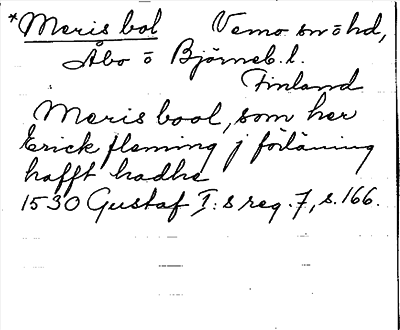 *Meris bol Vemo sn ö hd,
Åbo ö Björneb. l.
Finland
Meris bool, som her
Erick fleming j förläning
hafft hadhe
1530 Gustaf I:s reg. 7, s. 166.